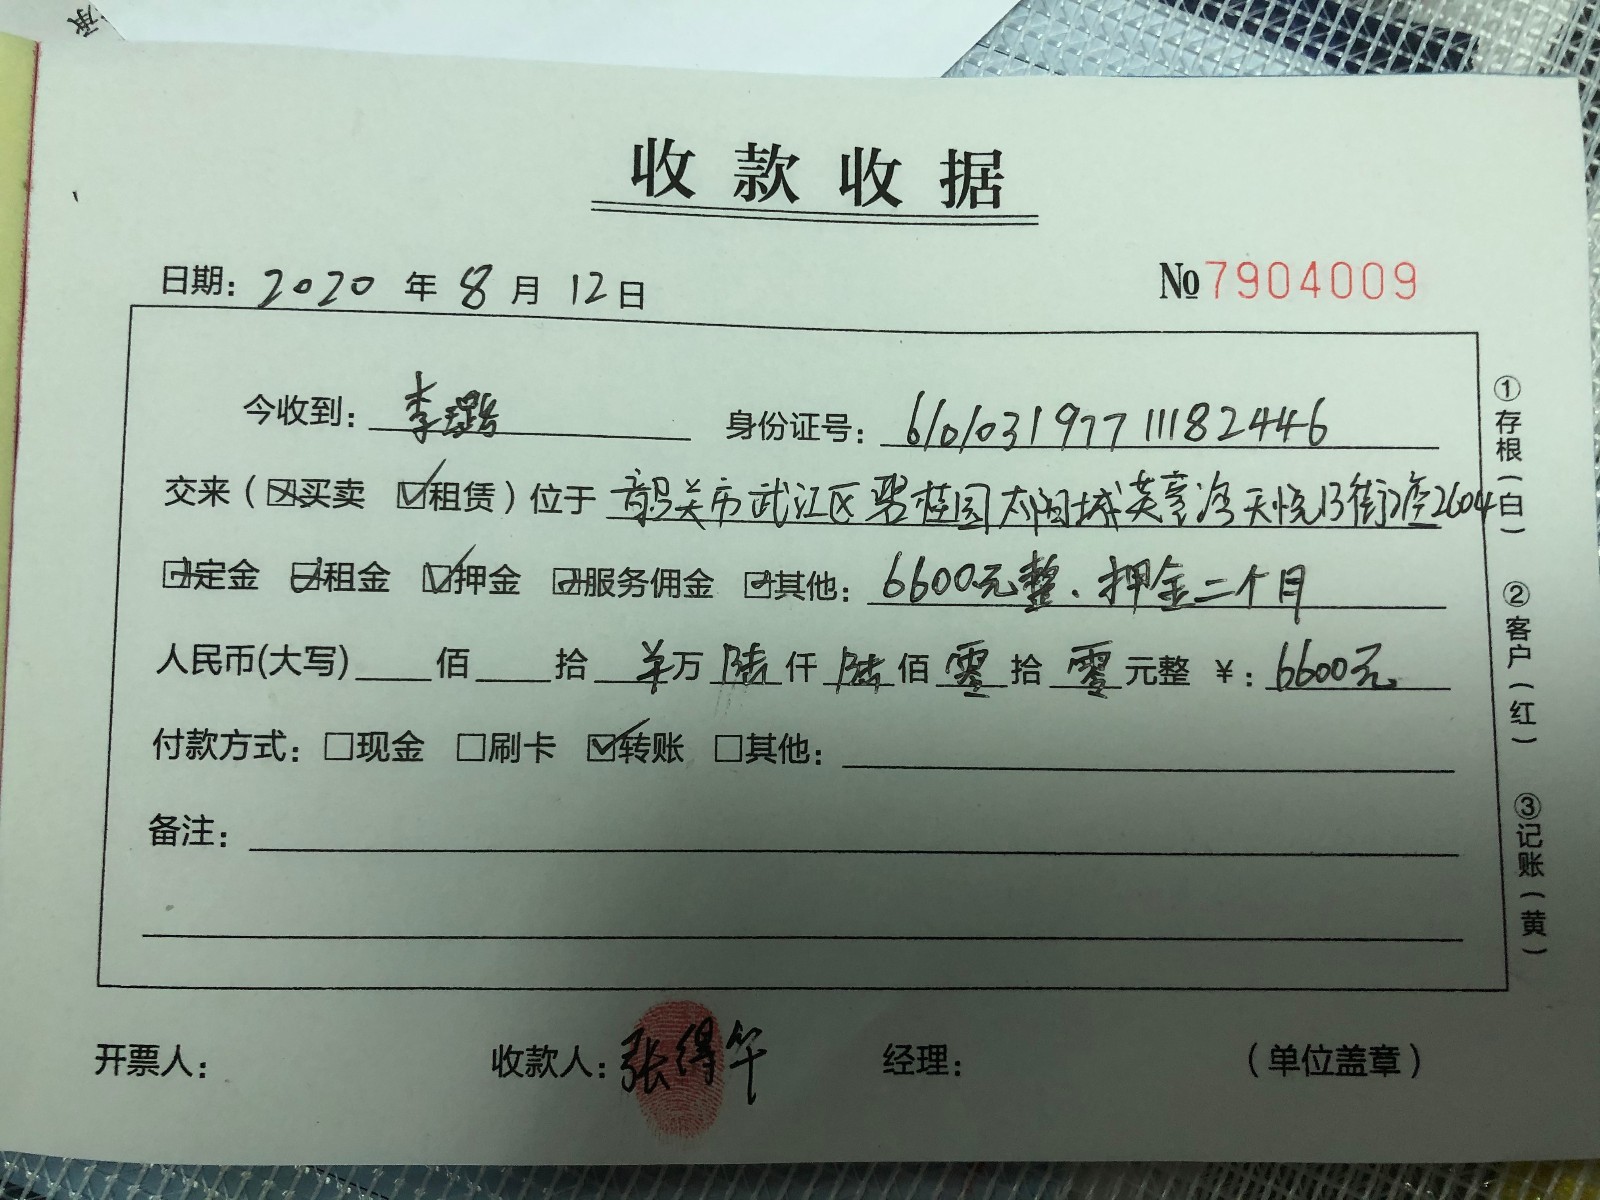 收款收据
日期: 2020 年 8 月 12 日 № 7904009
今收到: 李璐 身份证号: 610103197711182446
交来(☒买卖 ☑租赁)位于 韶关市武江区碧桂园太阳城芙蓉湾天悦13街2座2604
定金 租金 ☑押金 服务佣金 其他: 6600元整、押金二个月
人民币(大写) 佰 拾 羊万 陆仟 陆佰 零拾 零元整 ¥: 6600元
付款方式: □现金 □刷卡 ☑转账 □其他:
备注:
开票人: 收款人: 张得华 经理: (单位盖章)
①存根(白)
②客户(红)
③记账(黄)
承